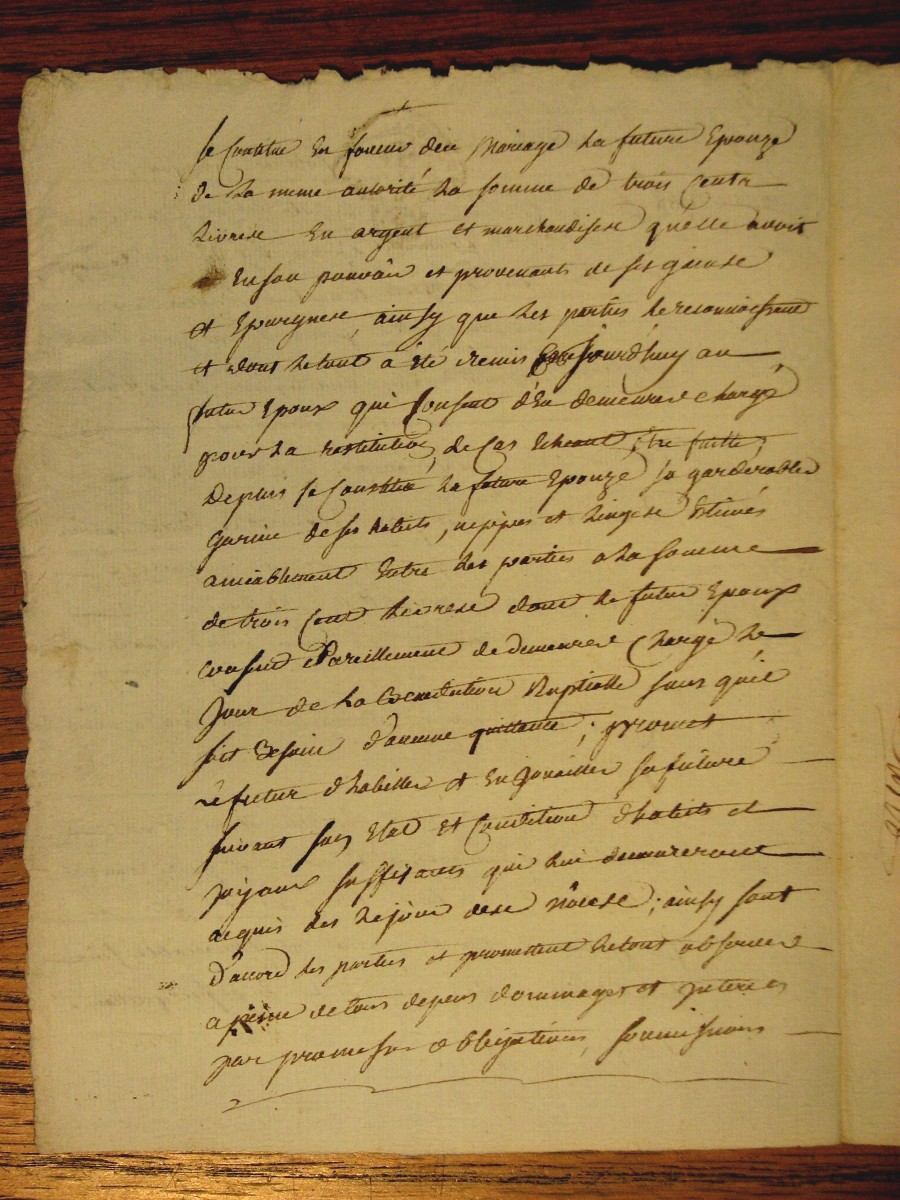 se Constitue En faveur dece Mariage La future Epouze
de La meme autorité La somme de trois Cents
Livrese En argent et marchandisese quelle avoit
Enson pouvoir et provenants de ses gaense
et Epargnese, ainsy que Les parties Lereconnoissent
et dont Letout a Eté remis aujourdhuy au
futur Epoux qui Consent d'En demeurere chargé
pour La restitution, de Cas Echeant Etre faitte,
Depluis se Constitue La future Epouze sa garderobbe
garnie de ses habits, nippes et Lingese Estimés
amiablement Entre Les parties a La somme
de trois Cent Livrese dont Le futur Epoux
consent Pareillement de demeurere Chargé Le
Jour de La Benediction Nuptialle sans quil
soit Besoin d'aucune quittance; promet
Le futur d'habiller et Enjouailler sa future
suivant son Etat et Condition d'habits et
joijaux suffisants qui Lui demeureront
acquis des Lejour dese Nocese; ainsy sont
d'accord Les parties et promettent Letout observere
a peine de tous depens dommages et Interes
par promesses obligations, soumissions